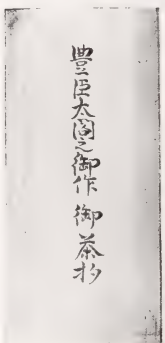 豊臣太閤之御作 御茶杓